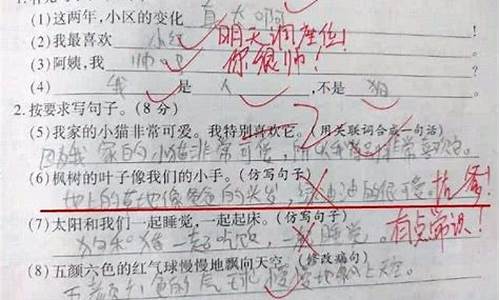 (1)这两年,小区的变化 真大啊
(2)我最喜欢 小红 明天调座位!
(3)阿姨,我 帅吧 你很帅!
(4) 我 是 人 ,不是 狗
2.按要求写句子。(8分)
(5)我家的小猫非常可爱。我特别喜欢它。(用关联词合成一句话)
因为我家的小猫非常可爱,所以我特别非常喜欢它。
(6)枫树的叶子像我们的小手。(仿写句子)
地上的草地像爸爸的头发,绿油油的很可爱。抗议!
(7)太阳和我们一起睡觉,一起起床。(仿写句子)
狗和猪一起吃饭,一起睡觉。 有点常识!
(8)五颜六色的红气球慢慢地飘向天空。(修改病句)
五颜六色的气球慢慢地飘上天空。